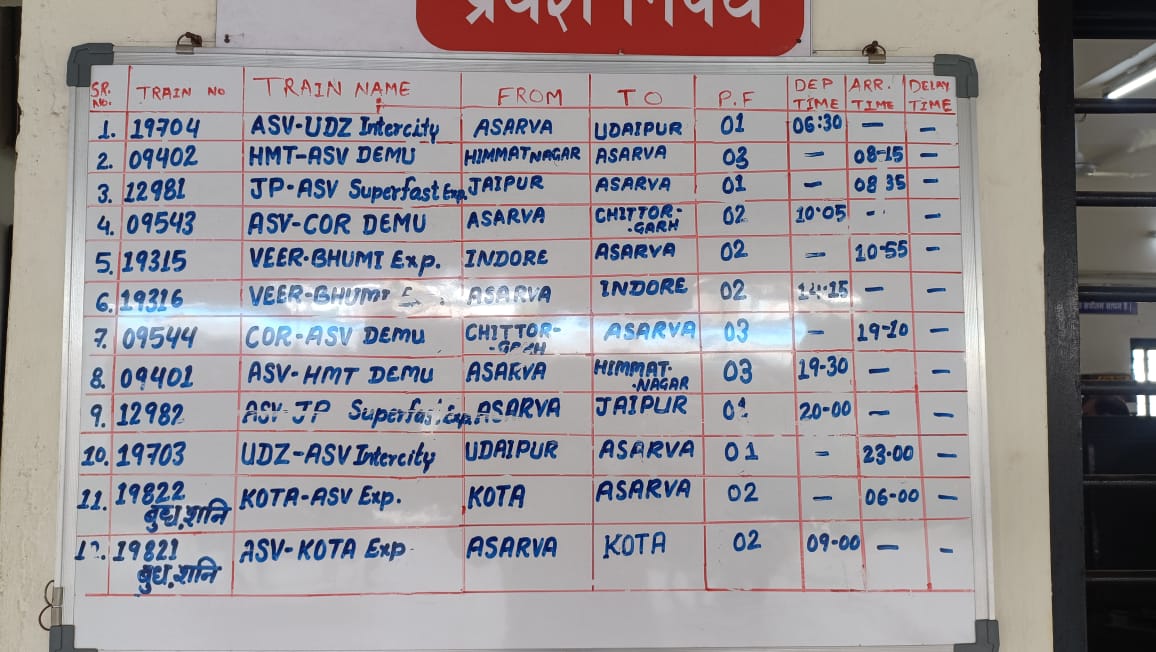 प्रवेश निषेध
SR. NO. TRAIN NO TRAIN NAME FROM TO P.F DEP TIME ARR. TIME DELAY TIME
1. 19704 ASV-UDZ Intercity ASARVA UDAIPUR 01 06:30 — —
2. 09402 HMT-ASV DEMU HIMMATNAGAR ASARVA 03 — 08-15 —
3. 12981 JP-ASV Superfast Exp. JAIPUR ASARVA 01 — 08 35 —
4. 09543 ASV-COR DEMU ASARVA CHITTOR-GARH 02 10:05 — —
5. 19315 VEER-BHUMI Exp. INDORE ASARVA 02 — 10-55 —
6. 19316 VEER-BHUMI ASARVA INDORE 02 14:15 — —
7. 09544 COR-ASV DEMU CHITTOR-GARH ASARVA 03 — 19-10 —
8. 09401 ASV-HMT DEMU ASARVA HIMMAT-NAGAR 03 19-30 — —
9. 12982 ASV-JP Superfast Exp ASARVA JAIPUR 01 20-00 — —
10. 19703 UDZ-ASV Intercity UDAIPUR ASARVA 01 — 23-00 —
11. 19822 KOTA-ASV Exp. KOTA ASARVA 02 — 06-00 —
बुध,शनि
12. 19821 ASV-KOTA Exp ASARVA KOTA 02 09-00 — —
बुध,शनि